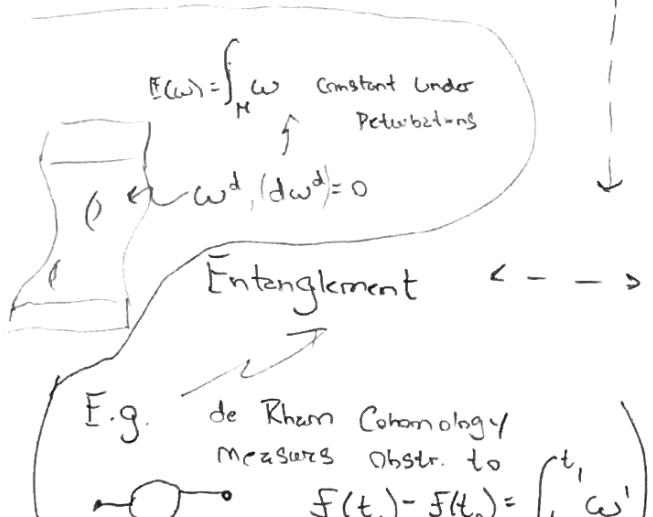 E(ω) = ∫_M ω constant under
Peturbations
ω^d, (dω^d) = 0
Entanglement
E.g. de Rham Cohomology
measurs obstr. to
f(t₁) - f(t₀) = ∫^t₁ ω¹